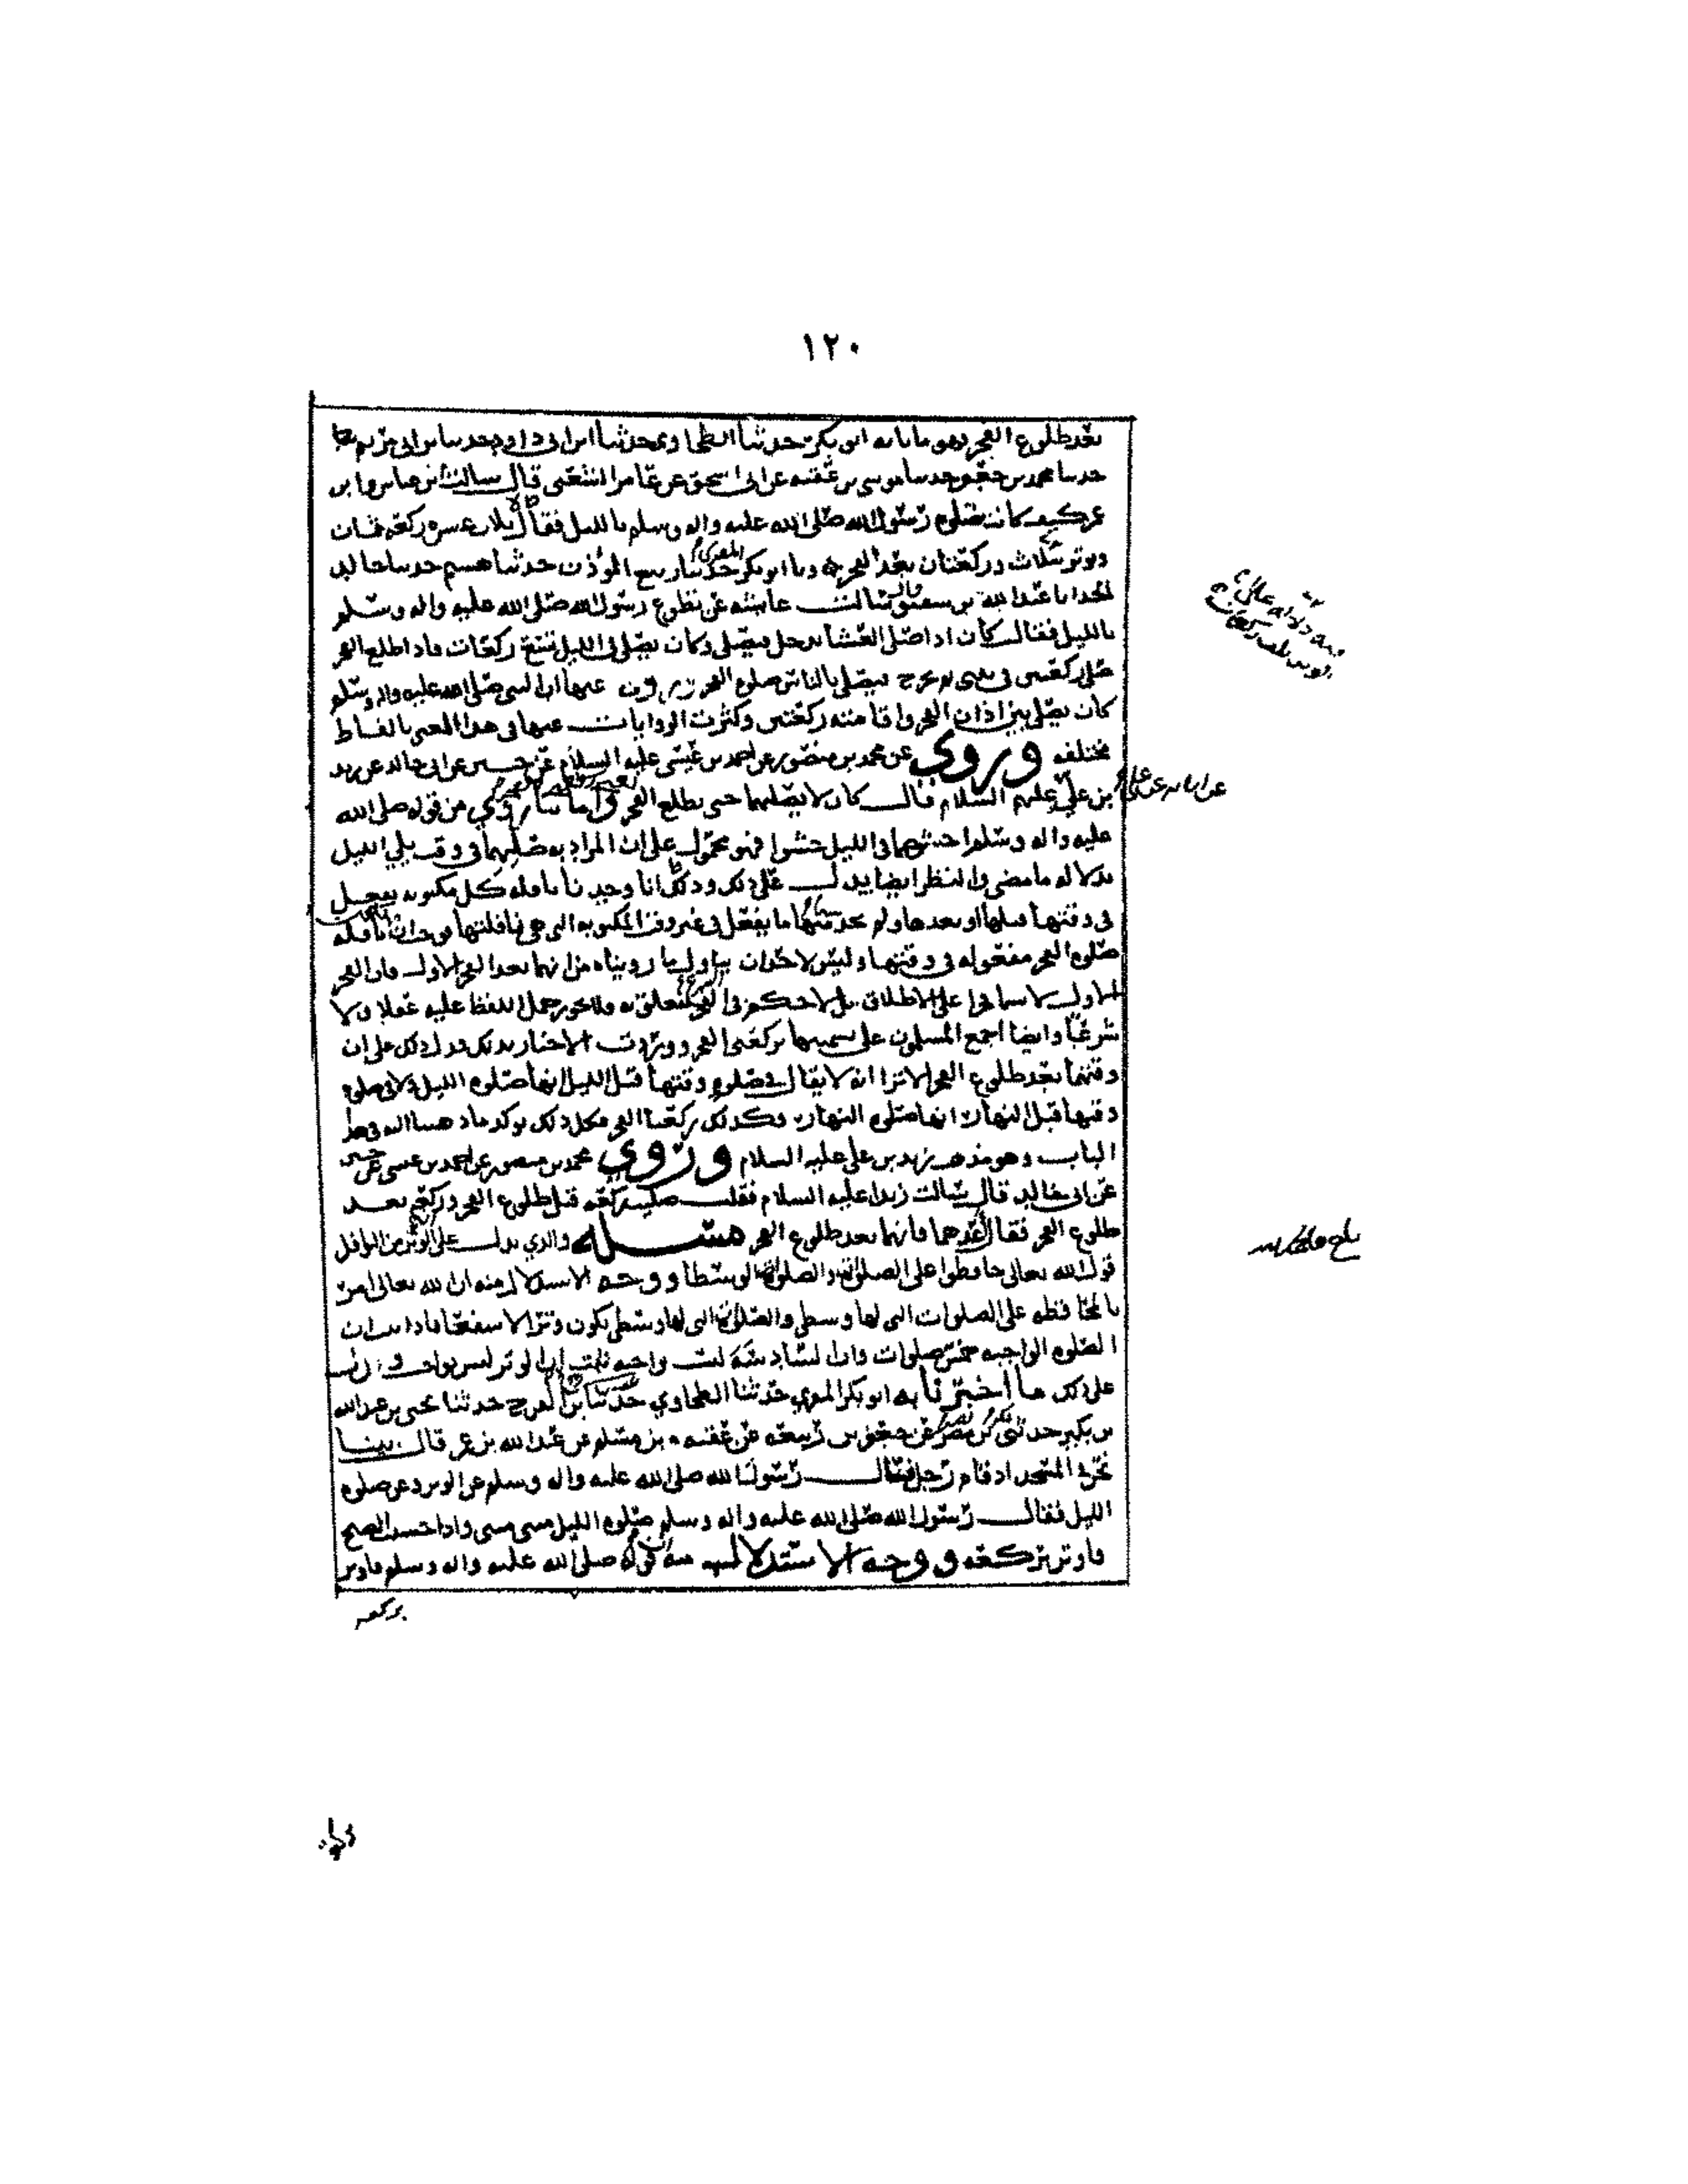 ١٢٠
بعد طلوع الفجر وهو ما انا به ابو بكر حدثنا الطحاوي حدثنا ابن ابي داود حدثنا بن ابي مريم
حدثنا محمد بن جعفر حدثنا موسى بن عقبة عن ابى اسحق عن عامر الشعبى قال سالت ابن عباس وابن
عمر كيف كانت صلوة رسول الله صلى الله عليه واله وسلم بالليل فقالا ثلاث عشره ركعه ثمان
ويوتر بثلاث وركعتان بعد الفجر وانا ابو بكر المقري حدثنا ربيع المؤذن حدثنا هشيم حدثنا خالد
الحذا نا عبد الله بن شقيق قال سالت عايشه عن تطوع رسول الله صلى الله عليه واله وسلم
بالليل فقالت كان اذا صلى العشا يدخل فيصلى وكان يصلى فى الليل تسع ركعات فاذا طلع الفجر
صلى ركعتين فى بيتى ثم يخرج فيصلى بالناس صلوة الفجر وروى عنها ان النبي صلى الله عليه واله وسلم
كان يصلى بين اذان الفجر واقامته ركعتين وكثرت الروايات عنها فى هذا المعنى بالفاظ
مختلفه وروى عن محمد بن منصور عن احمد بن عيسى عليه السلام عن حسين عن ابى خالد عن زيد
بن علي عن ابائه عن علي عليهم السلام قال كان لا يصليهما حتى يطلع الفجر واما ما روي من قوله صلى الله
عليه واله وسلم احشوهما فى الليل حشوا فهو محمول على ان المراد به صليهما فى وقت يلي الليل
بدلاله ما مضى والنظر ايضا يدل على ذلك وذلك انا وجدنا نافله كل مكتوبه يفعل
فى وقتها قبلها او بعدها ولم نجد شيئا ما يفعل فى غير وقت المكتوبه التى هي نافلتها فوجب ان نافله
صلوة الفجر مفعوله فى وقتها وليس لاحد ان يتاول ما رويناه من انهما بعد الفجر الاول فان الفجر
الاول لا يسما فجرا على الاطلاق بل لا حكم فى الشرع يتعلق به ولا يجوز حمل اللفظ عليه عقلا ولا
شرعا وايضا اجمع المسلمون على تسميتهما بركعتى الفجر ووردت الاخبار بذلك فدل ذلك على ان
وقتهما بعد طلوع الفجر الا ترا انه لا يقال فى صلوة وقتها قبل الليل انها صلوة الليل ولا فى صلوة
وقتها قبل النهار انها صلوة النهار وكذلك ركعتا الفجر فكل ذلك يوكد ما ذهبنا اليه فى هذا
الباب وهو مذهب زيد بن على عليه السلام وروى محمد بن منصور عن احمد بن عيسى عن حسين
عن ابى خالد قال سالت زيدا عليه السلام فقلت صليت ركعه قبل طلوع الفجر وركعه بعد
طلوع الفجر فقال اعدهما فانهما بعد طلوع الفجر مسئله والذي يدل على ان الوتر من النوافل
قول الله تعالى حافظوا على الصلوات والصلوة الوسطا ووجه الاستدلال منه ان الله تعالى امر
بالمحافظه على الصلوات التى لها وسطى والصلوة التى لها وسطى تكون وترا لا شفعا فاذا ثبت ان
الصلوة الواجبه خمس صلوات وان السادسه ليست واجبه ثبت ان الوتر ليس بواجب
على ذلك ما اخبرنا به ابو بكر المقري حدثنا الطحاوي حدثنا بن الفرج حدثنا يحيى بن عبد الله
بن بكير حدثنى بكر بن مضر عن جعفر بن ربيعه عن عقبه بن مسلم عن عبد الله بن عمر قال بينا
نحن فى المسجد اذ قام رجل فقال رسول الله صلى الله عليه واله وسلم عن الوتر وعن صلوة
الليل فقال رسول الله صلى الله عليه واله وسلم صلوة الليل مثنى مثنى واذا خشيت الصبح
فاوتر بركعه ووجه الاستدلال منه قوله صلى الله عليه واله وسلم فاوتر
بركعه